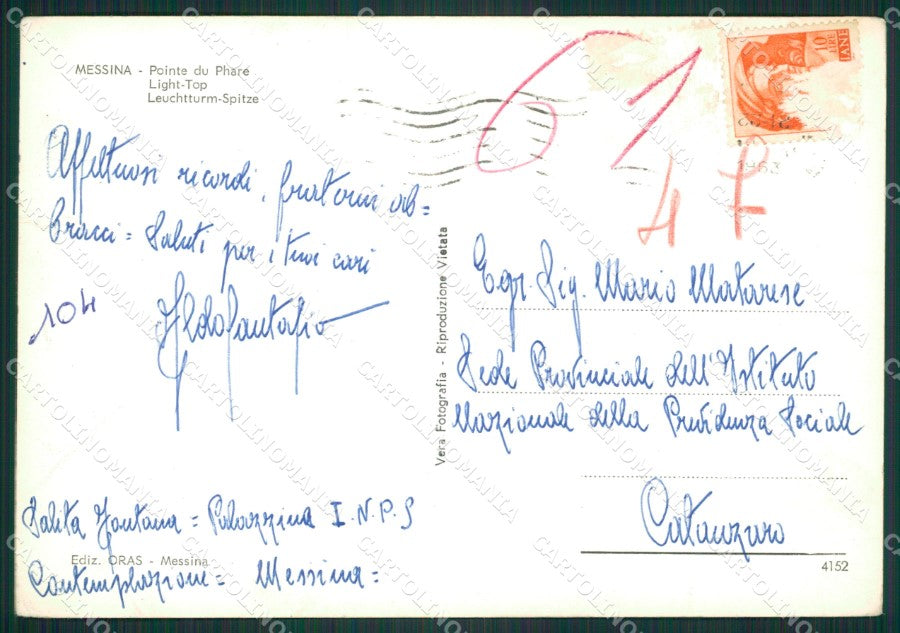 MESSINA - Pointe du Phare
Light-Top
Leuchtturm-Spitze
Affettuosi ricordi, fraterni ab=
bracci = Saluti per i tuoi cari
104
Salita Fontana = Palazzina I.N.P.S
Contemplazione = Messina =
Ediz. ORAS - Messina
Vera Fotografia - Riproduzione Vietata
10 LIRE
1963
61
47
Egr. Sig. Mario Matarese
Sede Provinciale dell'Istituto
Nazionale della Previdenza Sociale
Catanzaro
4152
CARTOLINOMANIA